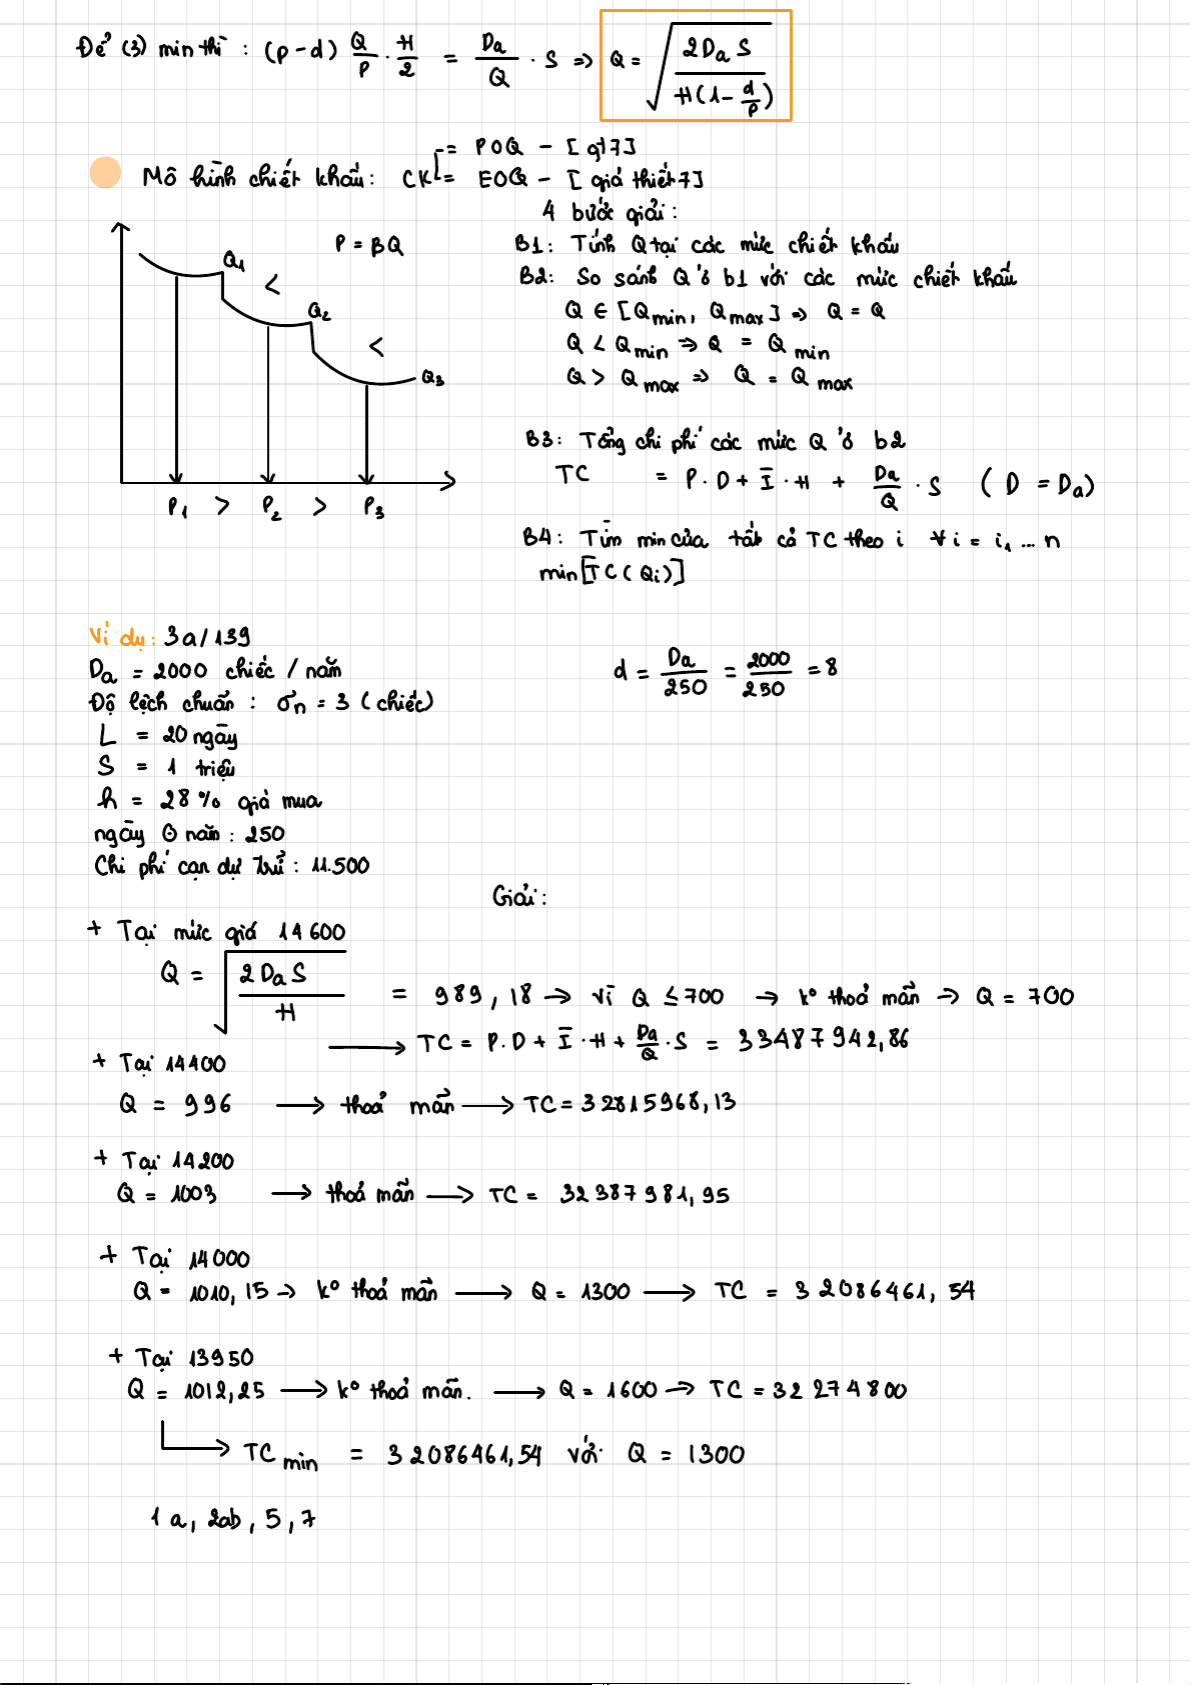 Để (3) min thì : (p-d) Q/P · H/2 = Da/Q · S => Q = √(2DaS / H(1 - d/p))
Mô hình chiết khấu: CK
= POQ - [gt 7]
= EOQ - [giả thiết 7]
4 bước giải :
B1: Tính Q tại các mức chiết khấu
B2: So sánh Q ở b1 với các mức chiết khấu
Q ∈ [Qmin, Qmax] => Q = Q
Q < Qmin => Q = Qmin
Q > Qmax => Q = Qmax
B3: Tổng chi phí các mức Q ở b2
TC = P.D + Ī · H + Da/Q · S ( D = Da)
B4: Tìm min của tất cả TC theo i ∀i = i, ... n
min[TC(Qi)]
P = BQ
Q1
<
Q2
<
Q3
P1 > P2 > P3
Ví dụ : 3a/139
Da = 2000 chiếc / năm
d = Da/250 = 2000/250 = 8
Độ lệch chuẩn : σn = 3 (chiếc)
L = 20 ngày
S = 1 triệu
h = 28% giá mua
năm : 250
Chi phí cạn dự trữ : 11.500
Giải :
+ Tại mức giá 14600
Q = √(2DaS / H) = 989,18 → vì Q ≤ 700 → k° thoả mãn → Q = 700
→ TC = P.D + Ī · H + Da/Q · S = 33487942,86
+ Tại 14400
Q = 996 → thoả mãn → TC = 32815968,13
+ Tại 14200
Q = 1003 → thoả mãn → TC = 32387981,95
+ Tại 14000
Q = 1010,15 → k° thoả mãn → Q = 1300 → TC = 32086461,54
+ Tại 13950
Q = 1012,25 → k° thoả mãn. → Q = 1600 → TC = 32274800
→ TCmin = 32086461,54 với Q = 1300
1a, 2ab, 5, 7